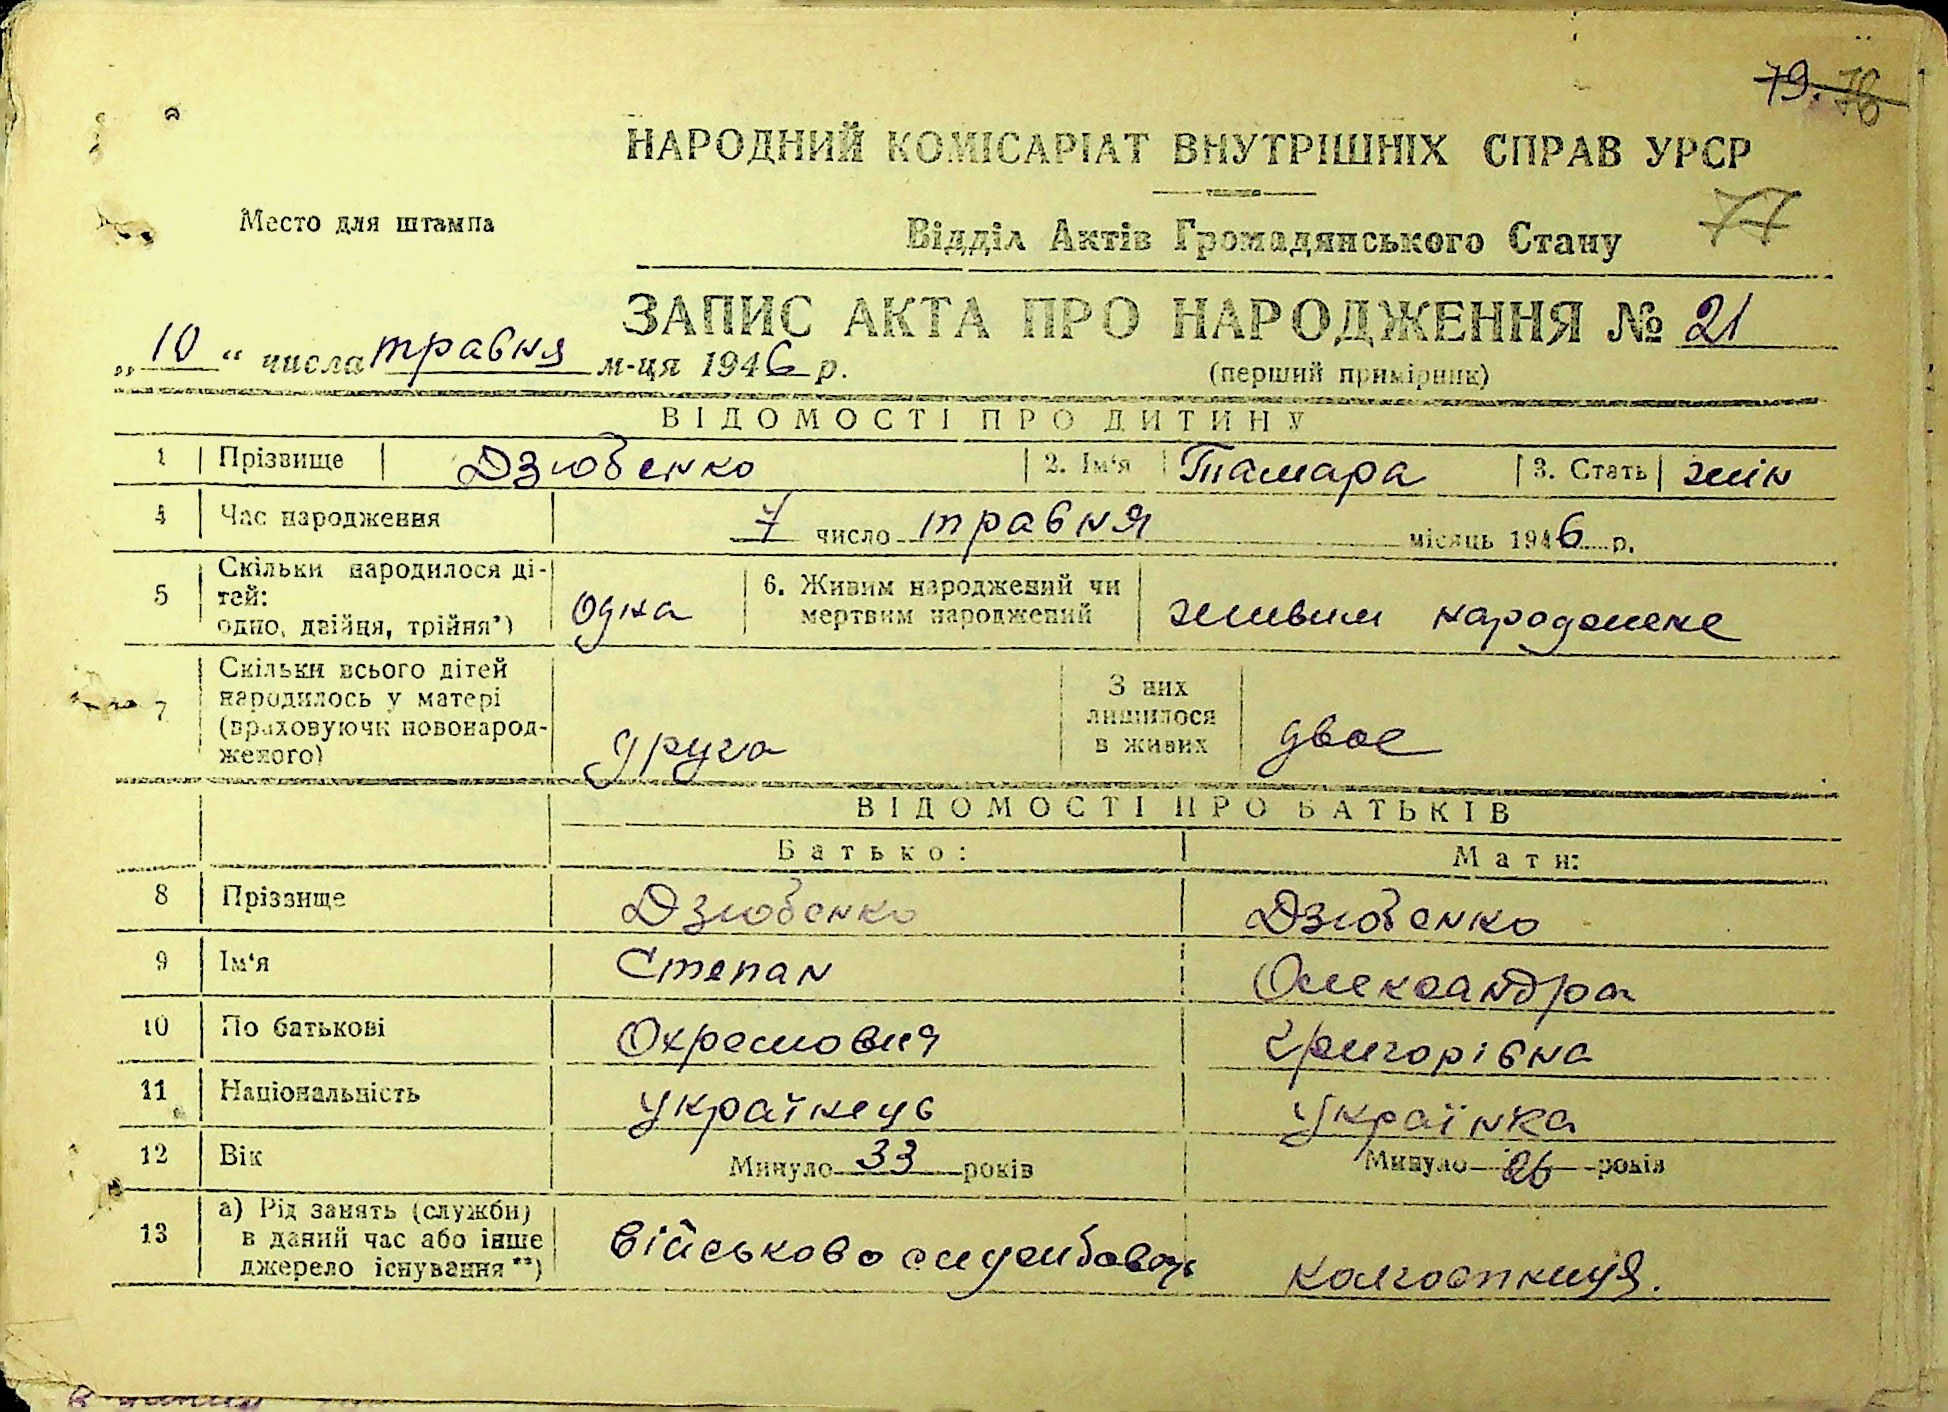 79. 78
НАРОДНИЙ КОМІСАРІАТ ВНУТРІШНІХ СПРАВ УРСР
77
Место для штампа
Відділ Актів Громадянського Стану
ЗАПИС АКТА ПРО НАРОДЖЕННЯ № 21
„ 10 “ числа травня м-ця 1946 р.
(перший примірник)
ВІДОМОСТІ ПРО ДИТИНУ
1 Прізвище Дзюбенко 2. Ім'я Тамара 3. Стать жін
4 Час народження 7 число травня місяць 1946 р.
5 Скільки народилося ді-
тей:
одно, двійня, трійня*) одна 6. Живим народжений чи
мертвим народжений живим народжене
7 Скільки всього дітей
народилось у матері
(враховуючи новонарод-
женого) друга З них
лишилося
в живих двое
ВІДОМОСТІ ПРО БАТЬКІВ
Батько: Мати:
8 Прізвище Дзюбенко Дзюбенко
9 Ім'я Степан Олександра
10 По батькові Охремович Григорівна
11 Національність Українець Українка
12 Вік Минуло 33 років Минуло 26 років
13 а) Рід занять (служби)
в даний час або інше
джерело існування**) військовослужбовець колгоспниця.